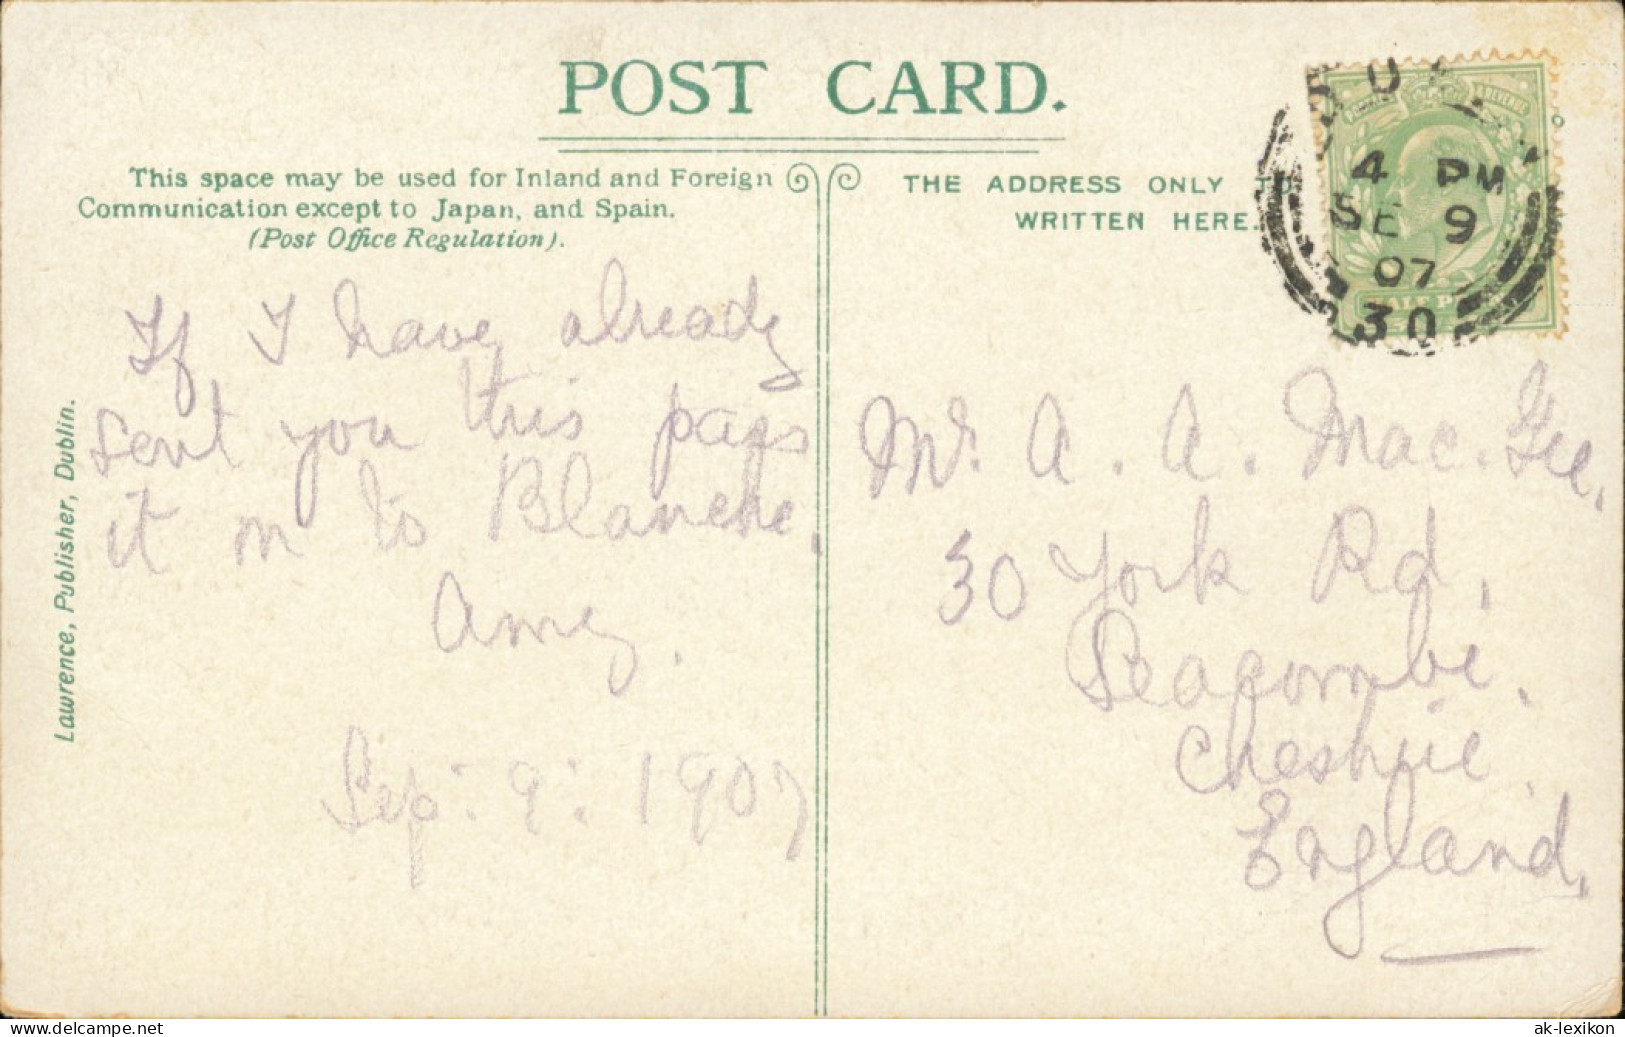 POST CARD.
This space may be used for Inland and Foreign
Communication except to Japan, and Spain.
(Post Office Regulation).
THE ADDRESS ONLY
WRITTEN HERE.
4 PM
SE 9
07
30
If I have already
sent you this pass
it on to Blanche.
Amy.
Sep: 9: 1907
Mr. A. A. MacGee,
30 York Rd,
Seacombe.
Cheshire
England,
Lawrence, Publisher, Dublin.
www.delcampe.net
ak-lexikon